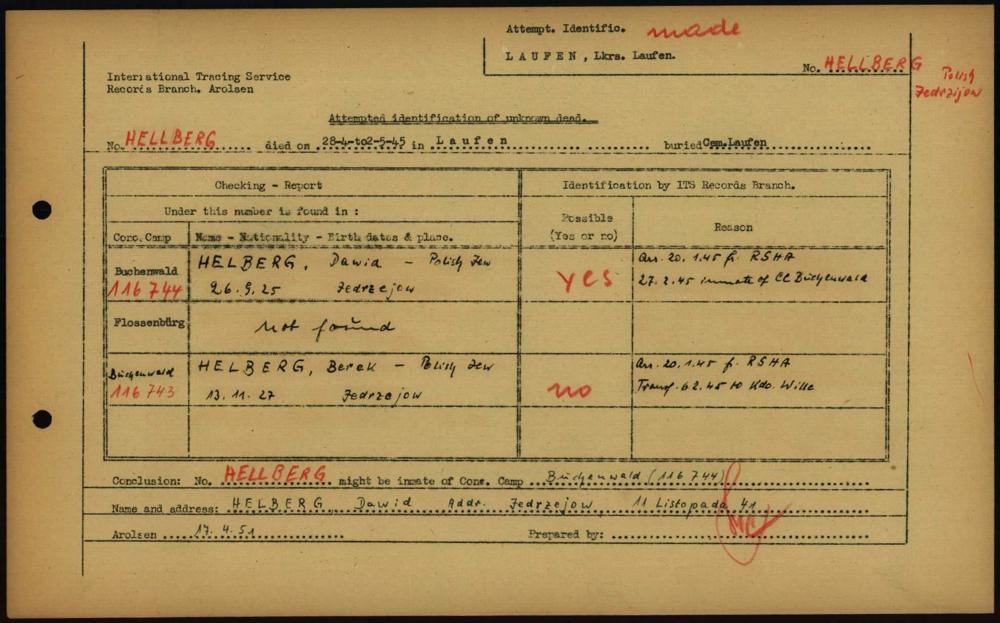 Attempt. Identific. made
LAUFEN, Lkrs. Laufen.
No. HELLBERG
Polish
Jedrzijow
International Tracing Service
Records Branch. Arolsen
Attempted identification of unknown dead.
No. HELLBERG died on 28-4-to2-5-45 in Laufen buried Cem.Laufen
Checking - Report
Identification by ITS Records Branch.
Under this number is found in :
Possible
(Yes or no)
Reason
Conc. Camp
Name - Nationality - Birth dates & place.
Buchenwald
116744
HELBERG, Dawid - Polish Jew
26.9.25 Jedrzejow
yes
Arr. 20.1.45 f. RSHA
27.2.45 inmate of CC Buchenwald
Flossenbürg
not found
Buchenwald
116743
HELBERG, Berek - Polish Jew
13.11.27 Jedrzejow
no
Arr. 20.1.45 f. RSHA
Transf. 6.2.45 to Kdo. Wille
Conclusion: No. HELLBERG might be inmate of Conc. Camp Buchenwald (116744)
Name and address: HELBERG, Dawid Addr. Jedrzejow, 11 Listopada 41
Arolsen 17.4.51
Prepared by: